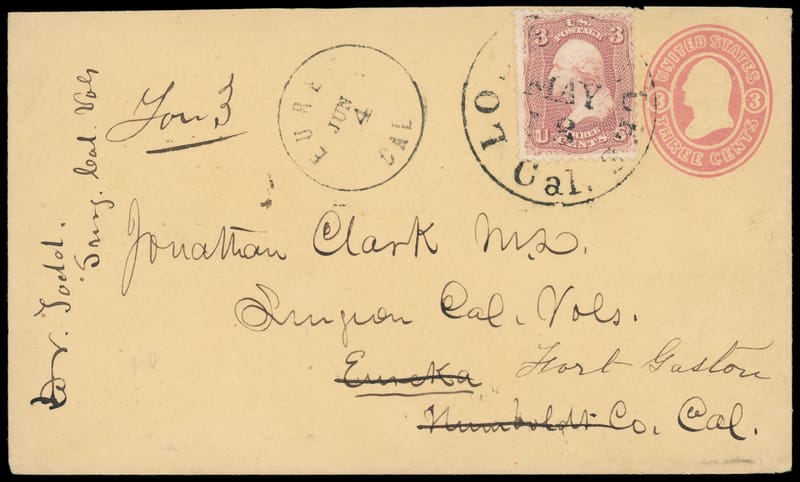 Dr. Todd.
Surg. Cal. Vols
For 3
EURE
CAL
JUN
4
LO
Cal.
MAY
U.S.
POSTAGE
3 3
U
THREE
CENTS
UNITED STATES
3 3
THREE CENTS
Jonathan Clark M.D.
Surgeon Cal. Vols.
Eureka Fort Gaston
Humboldt Co. Cal.